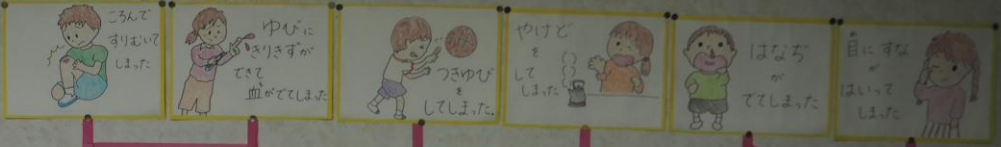 ころんで
すりむいて
しまった
ゆびに
きりきずが
できて
血がでてしまった
つきゆび
を
してしまった。
やけど
を
して
しまった
はなぢ
が
でてしまった
目にすな
が
はいって
しまった